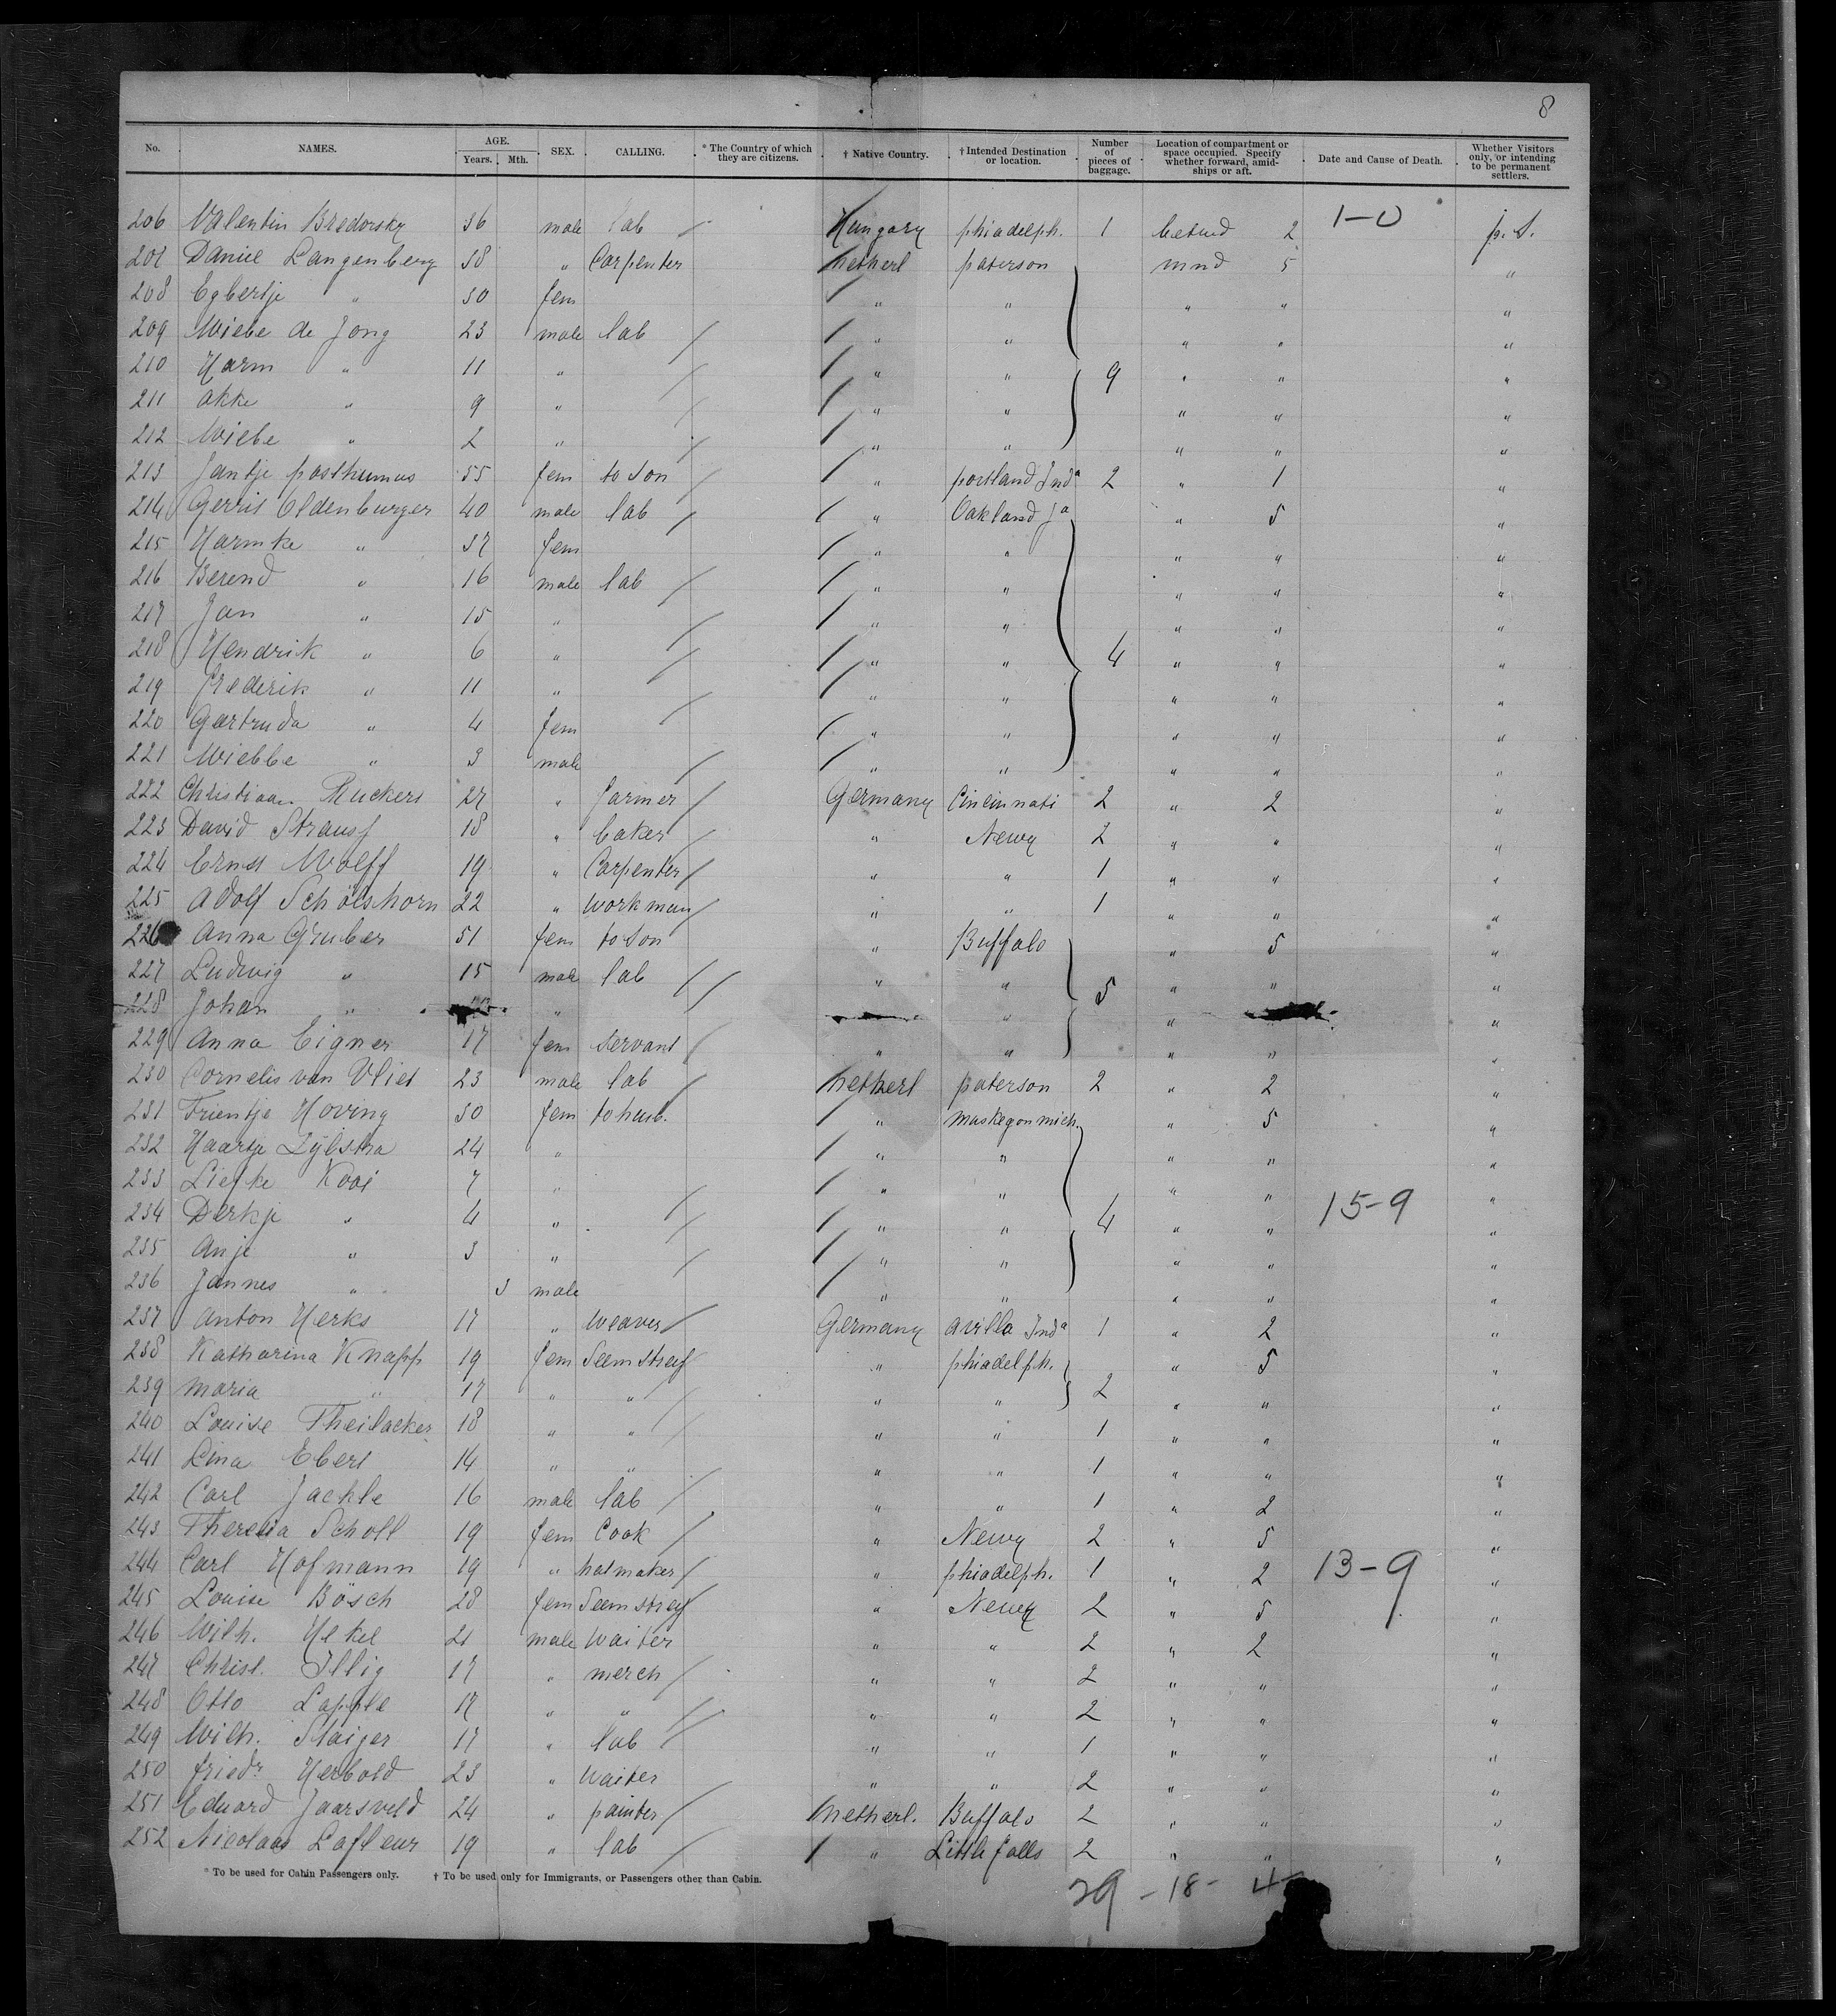 8
No. NAMES. AGE. Years. Mth. SEX. CALLING. * The Country of which they are citizens. † Native Country. † Intended Destination or location. Number of pieces of baggage. Location of compartment or space occupied. Specify whether forward, amidships or aft. Date and Cause of Death. Whether Visitors only, or intending to be permanent settlers.
206 Valentin Bredorsky 36 male lab Hungary phiadelph. 1 betwd 2 1-0 p. S.
207 Daniel Langenberg 38 " Carpenter netherl paterson mnd 5 "
208 Egbertje " 30 fem " " " " "
209 Wiebe de Jong 23 male lab " " " " "
210 Harm " 11 " " " 9 " " "
211 Akke " 9 " " " " " "
212 Wiebe " 2 " " " " " "
213 Jantje posthumus 55 fem to son " portland Indª 2 " 1 "
214 Gerrit Oldenburger 40 male lab " Oakland Jª " 5 "
215 Harmke " 37 fem " " " " "
216 Berend " 16 male lab " " " " "
217 Jan " 15 " " " " " "
218 Hendrik " 6 " " " 4 " " "
219 Frederik " 11 " " " " " "
220 Gertruda " 4 fem " " " " "
221 Wiebbe " 3 male " " " " "
222 Christiaan Ruckers 27 " farmer Germany Cincinnati 2 " 2 "
223 David Strauss 18 " baker " Newy 2 " " "
224 Ernst Wolff 19 " Carpenter " " 1 " " "
225 Adolf Schölshorn 22 " workman " " 1 " " "
226 Anna Gruber 51 fem to son " Buffalo " 5 "
227 Ludwig " 15 male lab " " 5 " " "
228 Johan " " " " "
229 Anna Eigner 17 fem Servant " " " " "
230 Cornelis van Vliet 23 male lab netherl paterson 2 " 2 "
231 Trientje Hoving 30 fem to husb. " muskegon mich. " 5 "
232 Haartje Zijlstra 24 " " " " " "
233 Liefke Kooi 7 " " " " " "
234 Derkje " 4 " " " 4 " " 15-9 "
235 Anje " 3 " " " " " "
236 Jannes " 3 male " " " " "
237 Anton Herks 17 " weaver Germany Avilla Indª 1 " 2 "
238 Katharina Knapp 19 fem Seemstress " phiadelph. " 5 "
239 maria " 17 " " " " 2 " " "
240 Louise Theilacker 18 " " " " 1 " " "
241 Lina Eberl 14 " " " " 1 " " "
242 Carl Jackle 16 male lab " " 1 " 2 "
243 Theresia Scholl 19 fem Cook " Newy 2 " 5 "
244 Carl Hofmann 19 " hatmaker " phiadelph. 1 " 2 13-9 "
245 Louise Bösch 28 fem Seemstress " Newy 2 " 5 "
246 Wilh. Hekel 21 male waiter " " 2 " 2 "
247 Christ. Illig 17 " merch " " 2 " " "
248 Otto Lapple 17 " " " " 2 " " "
249 Wilh. Staiger 17 " lab " " 1 " " "
250 friedr Herbold 23 " Waiter " " 2 " " "
251 Eduard Jaarsveld 24 " painter netherl. Buffalo 2 " " "
252 Nicolaas Lafleur 19 " lab " Little falls 2 " " "
* To be used for Cabin Passengers only. † To be used only for Immigrants, or Passengers other than Cabin.
29 - 18 - 4